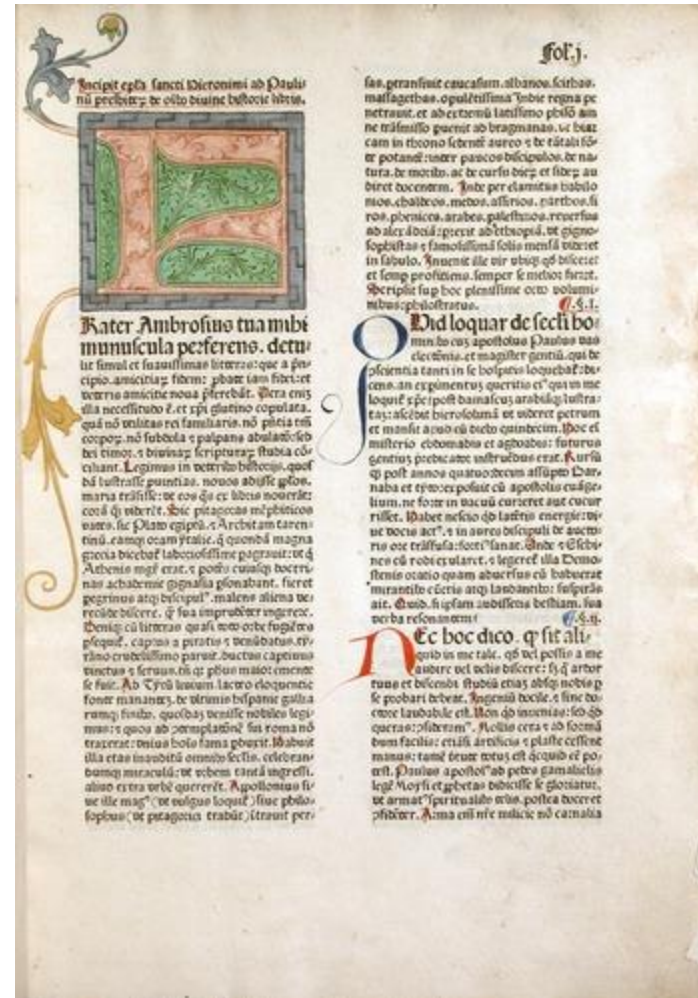 Fol. j.
Incipit epl̃a sancti Hieronimi ad Pauli-
nũ presbiteꝝ de oĩbꝰ diuine historie libris.
FRater Ambrosius tua mihi
munuscula perferens. detu-
lit simul et suauissimas litteras: que a prĩ-
cipio amicitiaꝝ fidem: ꝓbate iam fidei: et
veteris amicitie noua p̃ferebãt. Uera eniʒ
illa necessitudo ẽ. et xp̃i glutino copulata.
quã nõ vtilitas rei familiaris. nõ p̃ñtia tm̃
corpoꝝ. nõ subdola ⁊ palpans adulatõ: sed
dei timor. ⁊ diuinaꝝ scripturaꝝ studia cõ-
ciliant. Legimus in veteribꝰ historijs. quos-
dã lustrasse ꝓuintias. nouos adijsse pp̃los.
maria trãsisse: vt eos q̃s ex libris nouerãt:
corã q̃ʒ viderẽt. Sic pitagoras mẽphiticos
vates. sic Plato egiptũ. ⁊ Architam taren-
tinũ. eamq̃ʒ oram ytalie. q̃ quondã magna
grecia dicebat̃ laboriosissime pagrauit: vt q̃
Athenis mgr̃ erat. ⁊ potẽs cuiusq̃ʒ doctri-
nas achademie gignasia ꝑsonabant. fieret
peregrinus atq̃ʒ discipulꝰ. malens aliena ve-
recũde discere. q̃ʒ sua imprudẽter ingerere.
Deniq̃ʒ cũ litteras quasi toto orbe fugiẽtes
ꝑsequit̃. captus a piratis ⁊ venũdatus. ty-
rãno crudelissimo paruit. ductus captiuus
vinctus ⁊ seruus. tñ qꝛ phũs maior emente
se fuit. Ad Tytũ liuium. lacteo eloquentie
fonte mananteʒ. de vltimis hispanie gallia
rumq̃ʒ finibꝰ. quosdaʒ venisse nobiles legi-
mus: ⁊ quos ad ꝯtemplatõnẽ sui roma nõ
traxerat: vnius hoĩs fama ꝑduxit. Habuit
illa etas inauditũ omnibꝰ seclis. celebran-
dumq̃ʒ miraculũ: vt vrbem tantã ingressi.
aliud extra vrbẽ quererẽt. Apollonius si-
ue ille magꝰ (vt vulgus loquit̃) siue philo-
sophus (vt pitagorici tradũt) ĩtrauit per-
sas. ꝑtransiuit caucasum. albanos. scithas.
massagethas. opulẽtissima Indie regna pe
netrauit. et ad extremũ latissimo phisõ am
ne trãsmisso puenit ad bragmanas. vt hiar
cam in throno sedentẽ aureo ⁊ de tãtali fõ-
te potantẽ: inter paucos discipulos. de na-
tura. de moribꝰ. ac de cursu dieꝝ et sideꝝ au
diret docentem. Inde per elamitas babilo
nios. chaldeos. medos. assirios. parthos. si
ros. phenices. arabes. palestinos. reuersus
ad alexãdriã: ꝑrexit ad ethiopiã. vt gigno-
sophistas ⁊ famosissimã solis mensã videret
in sabulo. Inuenit ille vir vbiq̃ʒ qd̃ disceret
et semp̃ proficiens. semper se melior fieret.
Scripsit sup̃ hoc plenissime octo volumi-
nibus: philostratus. ¶.§.I.
QUid loquar de secl̃i ho-
minibꝰ: cuʒ apostolus Paulus vas
electõnis. et magister gentiũ. qui de
ꝯscientia tanti in se hospitis loquebat̃: di-
cens. an exꝑimentuʒ queritis eiꝰ qui in me
loquit̃ xp̃c: post damascuʒ arabiãq̃ʒ lustra-
taʒ: ascẽdit hierosolimã vt videret petrum
et mansit apud eũ diebꝰ quindecim. Hoc eĩ
misterio ebdomadis et ogdoadis: futurus
gentiuʒ predicator instruẽdus erat. Rursũ
q̃ʒ post annos quatuordecim assũpto Bar-
naba et tyto: exposuit cũ apostolis euãge-
lium. ne forte in vacuũ curreret aut cucur
risset. Habet nescio qd̃ latẽtis energie: vi-
ue vocis actꝰ. ⁊ in aures discipuli de aucto-
ris ore trãsfusa: fortiꝰ sanat. Unde ⁊ Eschi-
nes cũ rodi exularet. ⁊ legeret̃ illa Demo-
stenis oratio quam aduersus eũ habuerat
mirantibꝰ cũctis atq̃ʒ laudantibꝰ: suspirãs
ait. Quid. si ipsam audissetis bestiam. sua
verba resonantem? ¶.§.ij.
NEc hoc dico. qꝙ sit ali-
quid in me tale. qd̃ vel possis a me
audire vel velis discere: sʒ q̃ ardor
tuus et discendi studiũ etiaʒ absq̃ʒ nobis ꝑ
se probari debeat. Ingeniũ docile. ⁊ sine do-
ctore laudabile est. Non qd̃ inuenias: sed qd̃
queras: ꝯsideramꝰ. Mollis cera ⁊ ad formã
dum facilis: etiãsi artificis ⁊ plaste cessent
manus: tamẽ virtute totuʒ est q̃cquid eẽ po-
test. Paulus apostolꝰ ad pedes gamalielis
legẽ Moysi et ꝓphetas didicisse se gloriatur.
vt armatꝰ spiritualibꝰ telis. postea doceret
ꝯfidẽter. Arma eniʒ nr̃e milicie nõ carnalia